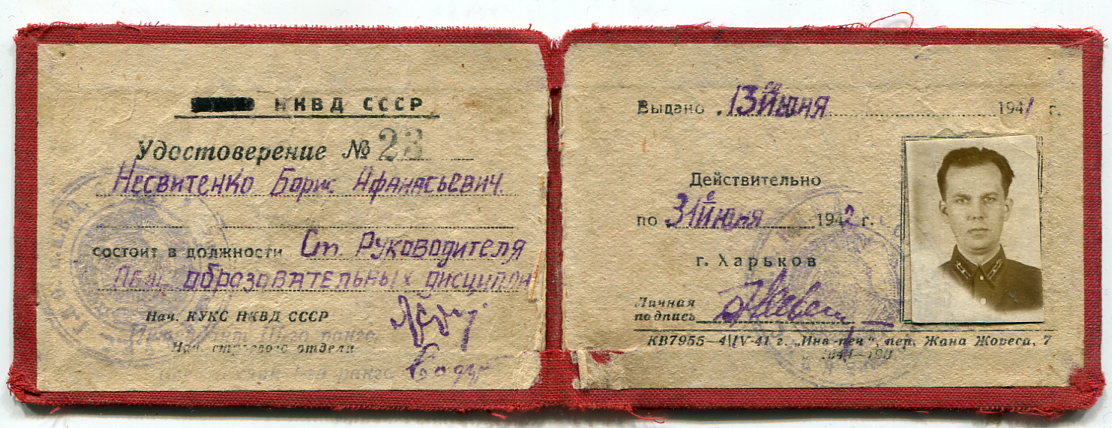 НКВД СССР
Удостоверение № 23
Несвитенко Борис Афанасьевич
состоит в должности Ст. Руководителя
образовательных дисциплин
Нач. КУКС НКВД СССР
Нач. строевого отдела
Выдано 13 Июня 1941 г.
Действительно
по 31 Июля 1942 г.
г. Харьков
Личная
подпись
КВ7955—4/IV-41 г. „Инв-печ“, пер. Жана Жореса, 7